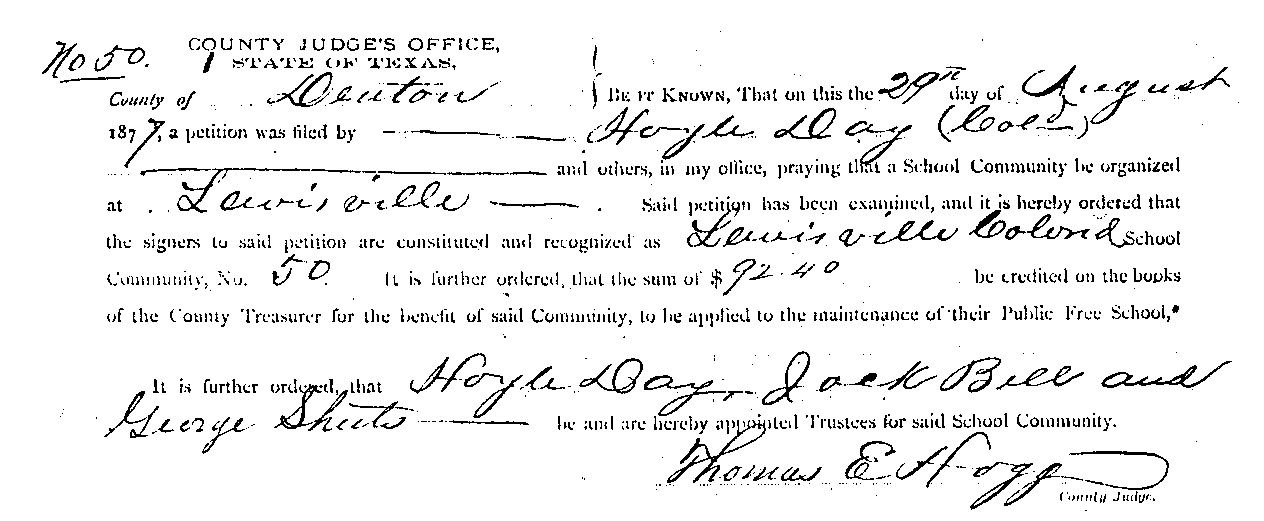 No 50. COUNTY JUDGE'S OFFICE,
STATE OF TEXAS,
County of Denton } BE IT KNOWN, That on this the 29th day of August
1877, a petition was filed by Hoyle Day (Cold)
and others, in my office, praying that a School Community be organized
at Lewisville. Said petition has been examined, and it is hereby ordered that
the signers to said petition are constituted and recognized as Lewisville Colord School
Community, No. 50. It is further ordered, that the sum of $ 92.40 be credited on the books
of the County Treasurer for the benefit of said Community, to be applied to the maintenance of their Public Free School,*
It is further ordered, that Hoyle Day, Jack Bell and
George Shuts be and are hereby appointed Trustees for said School Community.
Thomas E Hogg
County Judge.